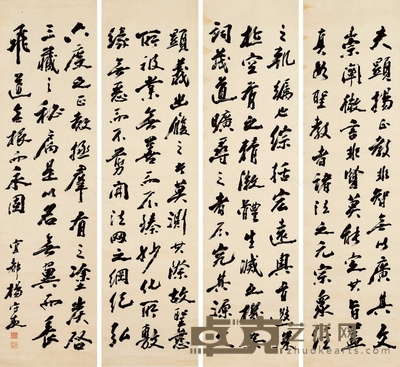 夫顯揚正教非智無以廣其文
崇闡微言非賢莫能定其旨蓋
真如聖教者諸法之元宗衆經
之軌躅也綜括宏遠奧旨遐深
極空有之精微體生滅之機要
詞茂道曠尋之者不究其源文
顯義幽履之者莫測其際故聖慈
所被業無善而不臻妙化所敷
緣無惡而不剪開法网之綱紀弘
六度之正教拯羣有之塗炭啓
三藏之秘扃是以名無翼而長
飛道無根而永固 宜都楊守敬